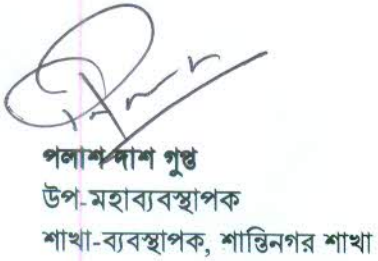 পলাশ দাশ গুপ্ত
উপ-মহাব্যবস্থাপক
শাখা-ব্যবস্থাপক, শান্তিনগর শাখা